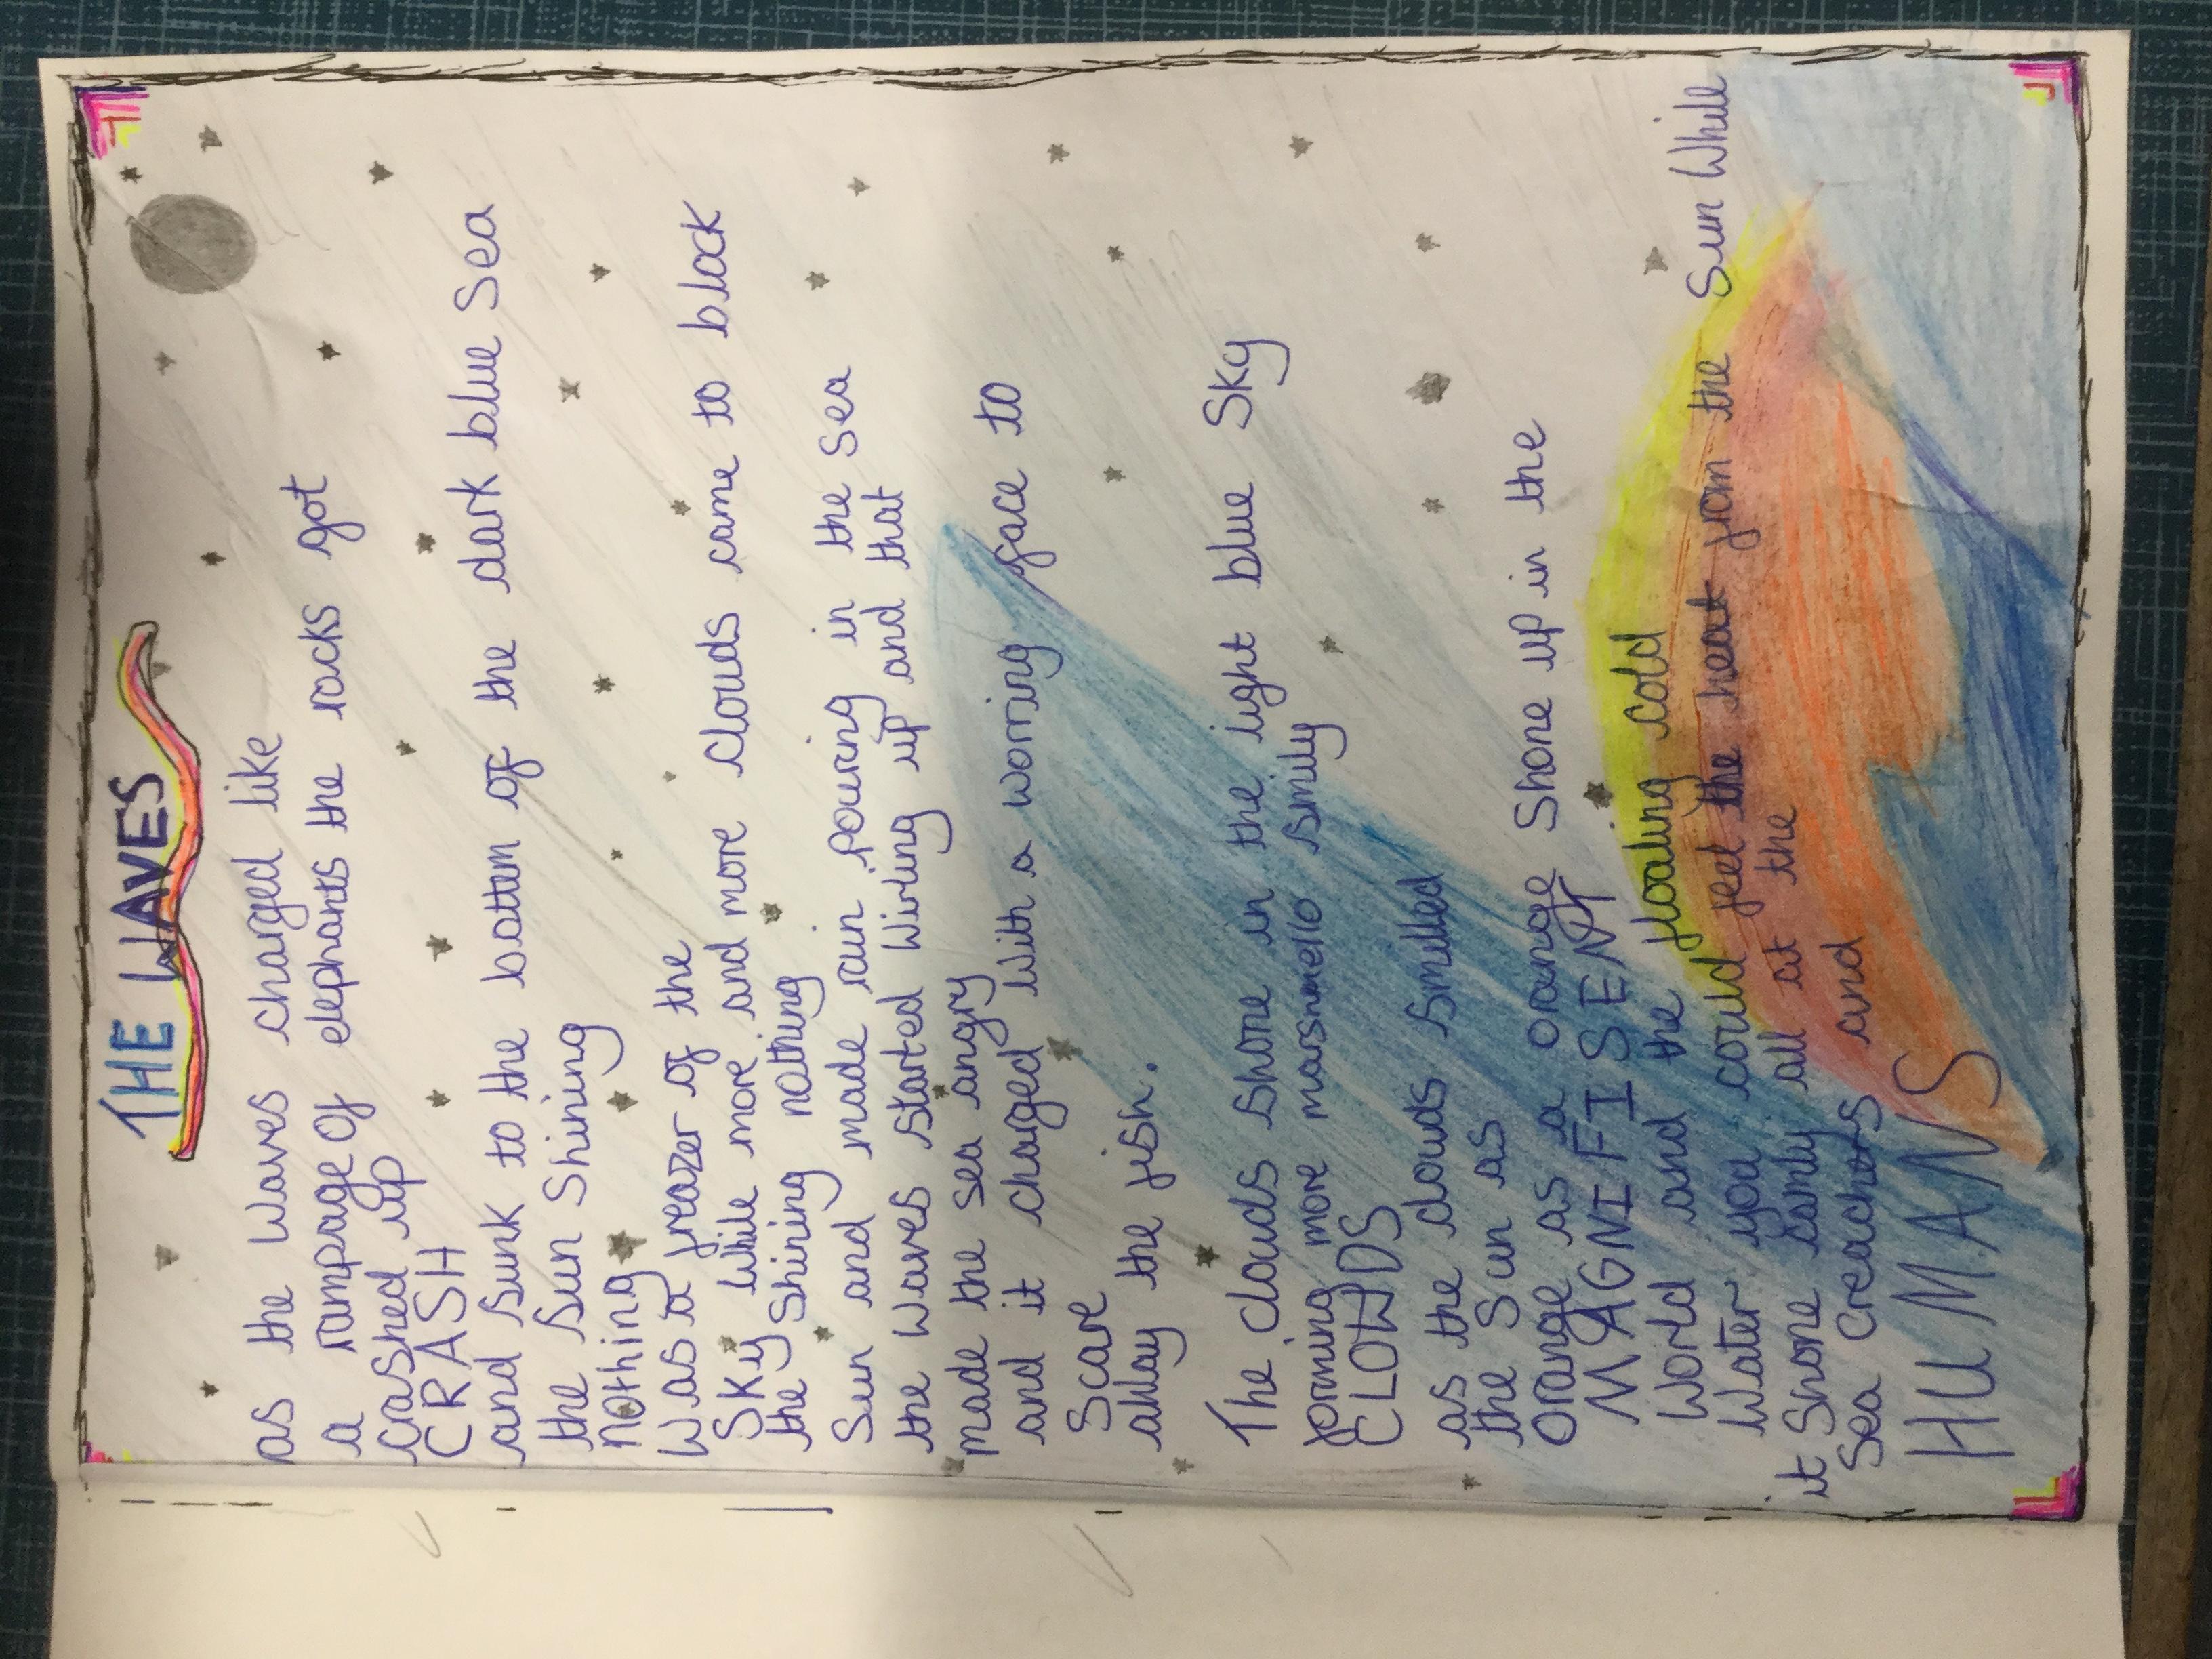 THE WAVES
as the waves charged like
a rampage of elephants the rocks got
crashed up
CRASH
and sunk to the bottem of the dark blue sea
the sun shining
nothing
was a freazer of the
sky while more and more clouds came to black
the shining nathing
sun and made rain pouring in the sea
the waves started wirling up and that
made the sea angry
and it charged with a worring face to
scare
away the fish.
The clouds shone in the light blue sky
forming more marsmello smily
CLOWDS
as the clouds smilled
the sun as
orange as a orange shone up in the
MAGNIFISENT
world and the floaing cold
water you could feel the heat from the sun while
it shone samly all at the
sea creachers and
HUMANS